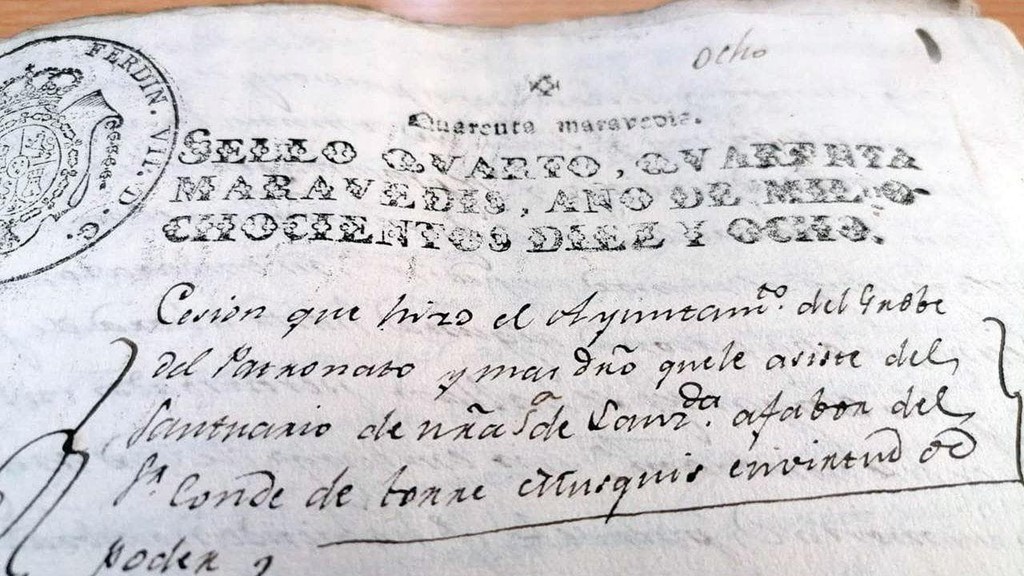 ocho
FERDIN. VII. D. G.
Quarenta maravedis.
SELLO QVARTO, QVARENTA
MARAVEDIS, AÑO DE MIL O-
CHOCIENTOS DIEZ Y OCHO.
Cesion que hizo el Ayuntamto. del Grobe
del Patronato y mas dro quele asiste del
Santuario de nra Sa de Lanzda. afabor del
Sr. Conde de torre Musquis envirtud de
poder